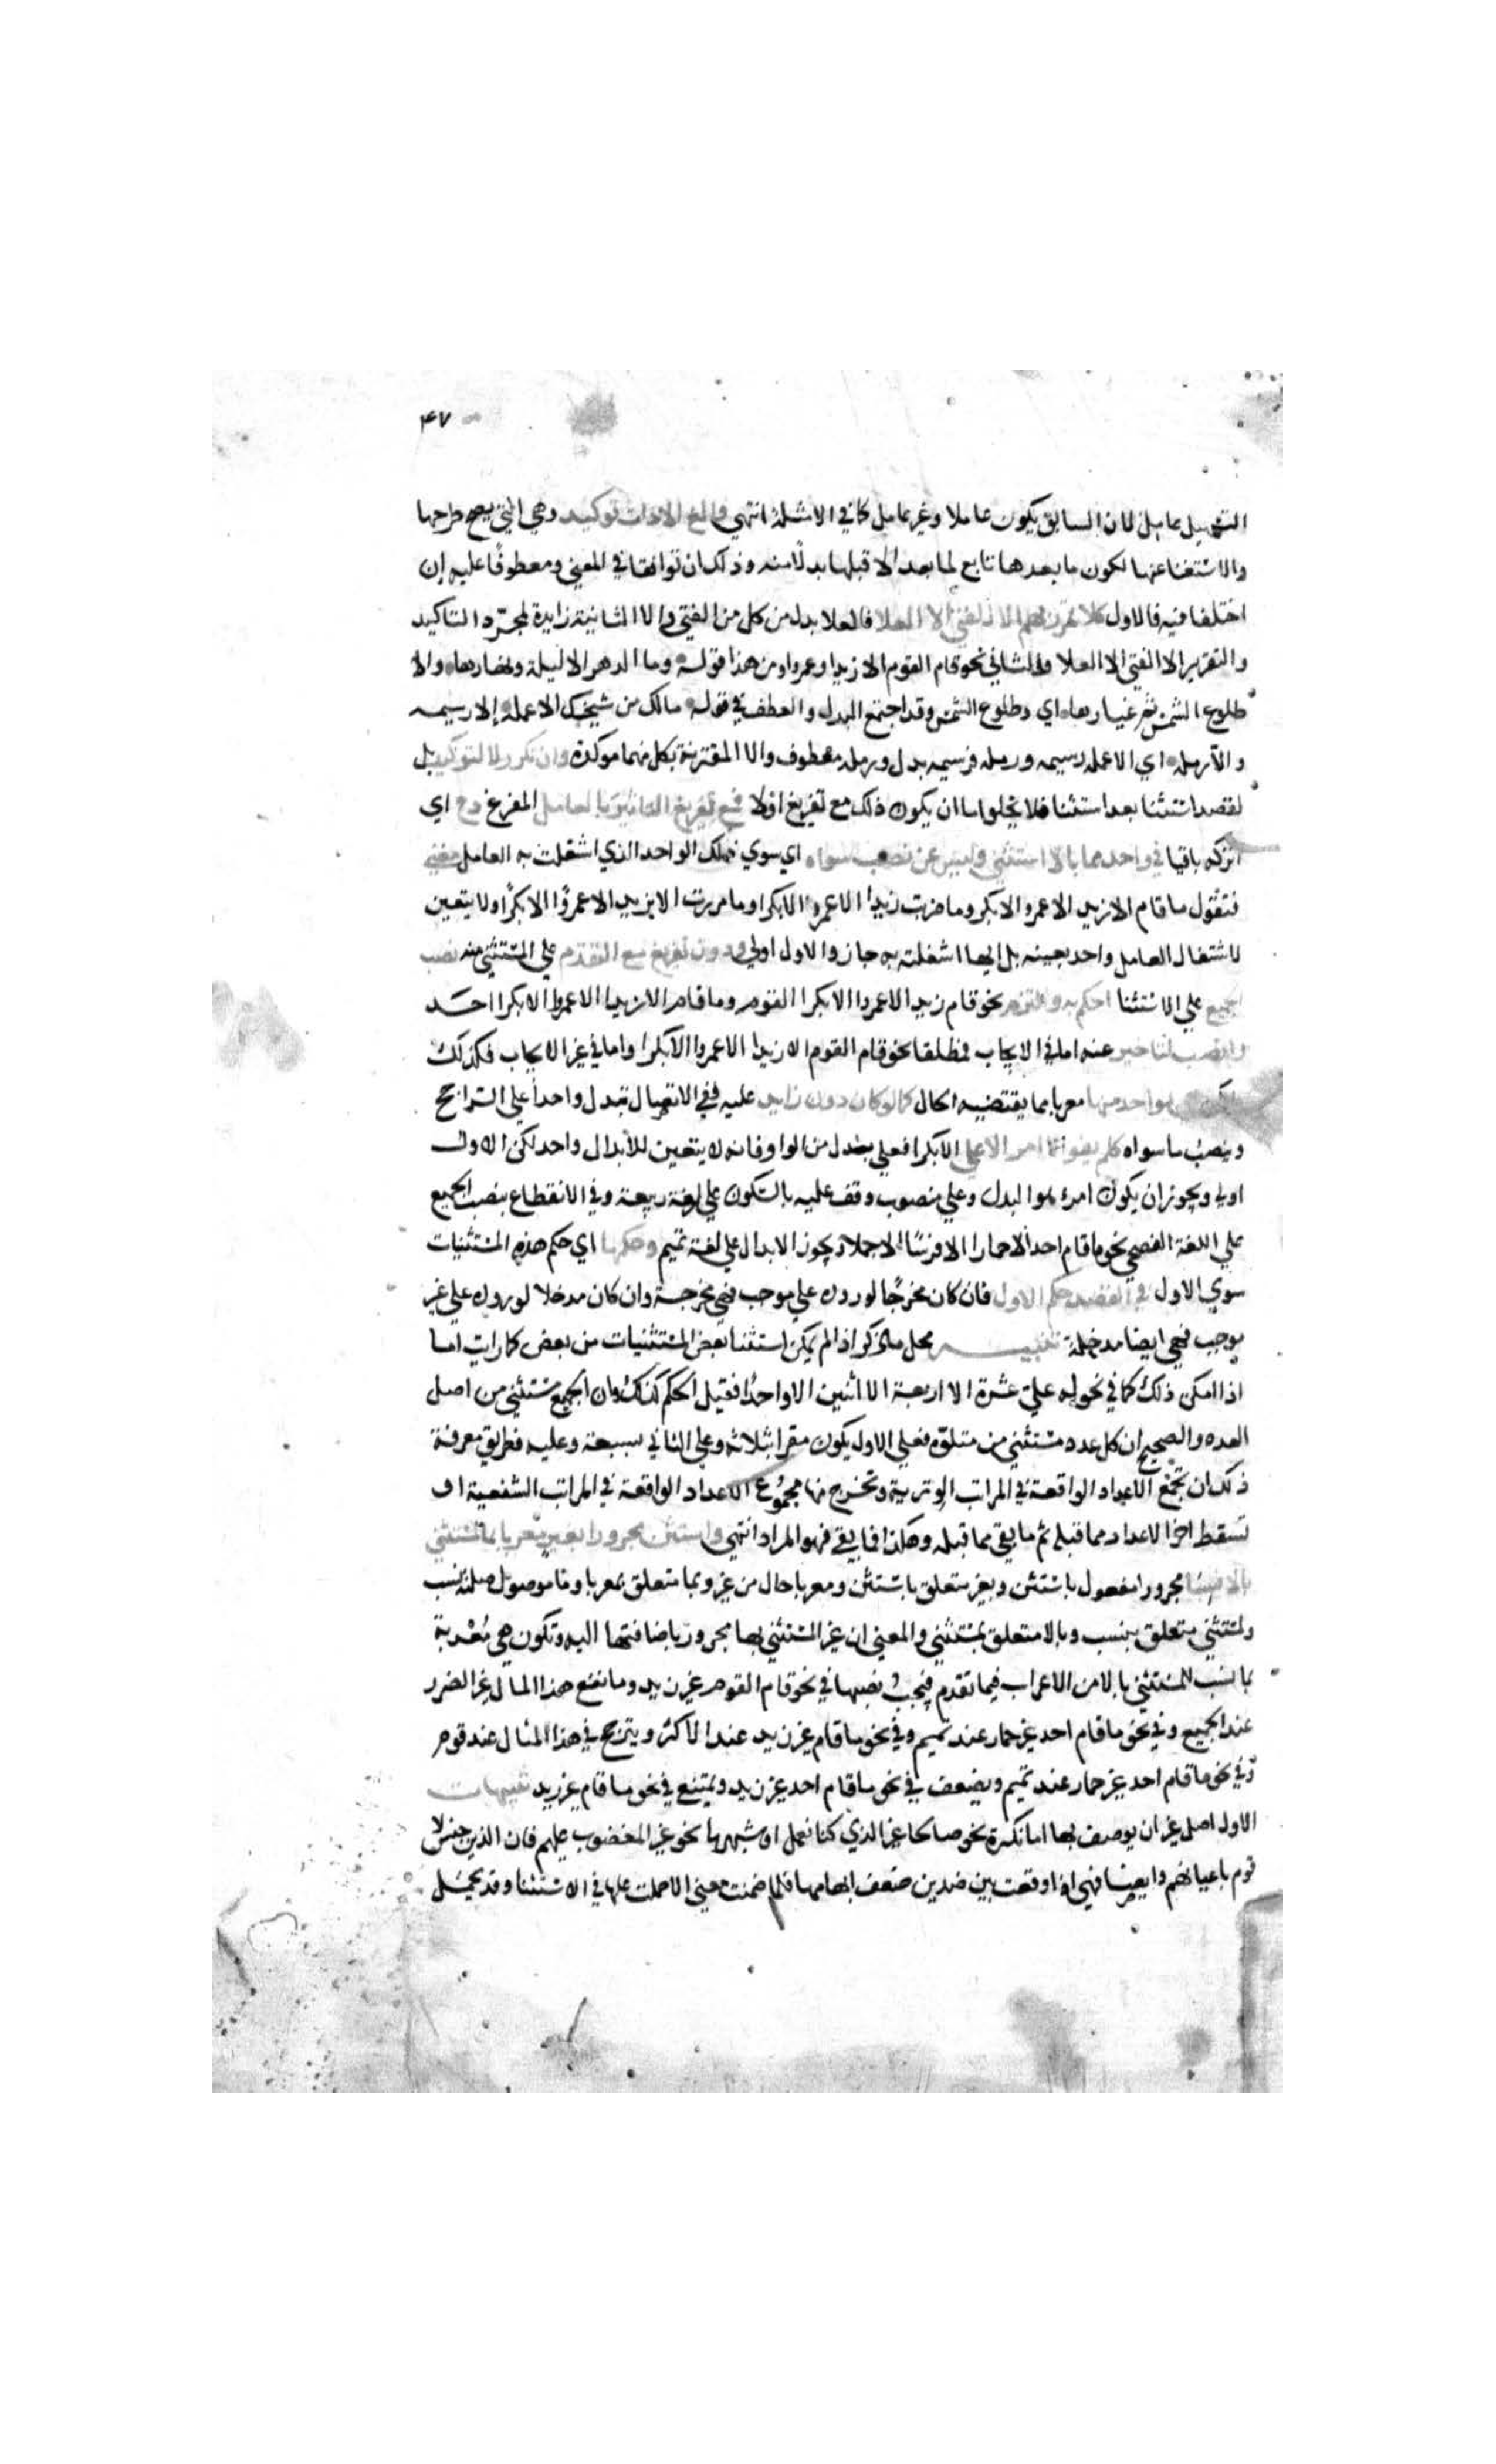 ۴۷
التسهيل عامل لان السابق يكون عاملا وغير عامل كما في الامثلة انتهى والغ الا ذات توكيد وهي التي يصح طرحها
والاستغنا عنها لكون ما بعدها تابع لما بعد الا قبلها بدلا منه وذلك ان توافقا في المعنى ومعطوفا عليه إن
اختلفا فيه فالاول كلا تمرر بهم الا الفتى الا العلا فالعلا بدل من كل من الفتى والا الثانية زايدة لمجرّد التاكيد
والتقدير الا الفتى الا العلا والثاني نحو قام القوم الا زيدا وعمرا ومن هذا قوله وما الدهر الا ليلة ونهارها والا
طلوع الشمس ثم غيارها اي وطلوع الشمس وقد اجتمع البدل والعطف في قوله مالك من شيخك الا عمله إلا رسيمه
والا رمله اي الا عمله رسيمه ورمله فرسيمه بدل ورمله معطوف والا المقترنة بكل منهما موكدة وان تكرر لا لتوكيد بل
لقصد استثنا بعد استثنا فلا يخلو اما ان يكون ذلك مع تفريغ اولا فمع تفريغ التاثير بالعامل المفرغ دع اي
اتركه باقيا في واحد مما بالا استثني وليس عن نصب سواه اي سوي ذلك الواحد الذي اشغلت به العامل مغني
فتقول ما قام الا زيد الا عمرو الا بكر وما ضربت زيدا الا عمرو الا بكرا وما مررت الا بزيد الا عمروًا الا بكرًا ولا يتعين
لاشتغال العامل واحد بعينه بل ايها اشغلته به جاز والاول اولى ودون تفريغ مع التقدم على المستثنى منه نصب
الجميع على الاستثنا احكم به والتزم نحو قام زيد الا عمروا الا بكرا القوم وما قام الا زيدا الا عمروا الا بكرا احد
وانصب لتاخير عنه اما في الايجاب فمطلقا نحو قام القوم الا زيدا الا عمروا الا بكرا واما في غير الايجاب فكذلك
لكن بواحد منها معربا بما يقتضيه الحال كما لو كان دون زايد عليه ففي الاتصال تبدل واحدا على الراجح
وينصب ما سواه كلم يفوا الا امر الا علي الا بكرا فعلي بدل من الواو فانه لا يتعين للابدال واحد لكن الاول
اولى ويجوز ان يكون امرء هو البدل وعلي منصوب وقف عليه بالسكون على لغة ربيعة وفي الانقطاع ينصب الجميع
على اللغة الفصحي نحو ما قام احد الا حمارا الا فرسًا الا جملا ويجوز الابدال على لغة تميم وحكمها اي حكم هذه المستثنيات
سوي الاول في القصد حكم الاول فان كان مخرجًا لوروده على موجب فهي مخرجة وان كان مدخلا لوروده على غير
موجب فهي ايضا مدخلة تنبيه محل ما ذكر اذا لم يمكن استثنا بعض المستثنيات من بعض كما رايت اما
اذا امكن ذلك كما في نحو له علي عشرة الا اربعة الا اثنين الا واحدًا فقيل الحكم كذلك وان الجميع مستثنى من اصل
العدد والصحيح ان كل عدد مستثنى من متلوّه فعلى الاول يكون مقرا بثلاثة وعلى الثاني بسبعة وعليه فطريق معرفة
ذلك ان تجمع الاعداد الواقعة في المراتب الوترية وتخرج منها مجموع الاعداد الواقعة في المراتب الشفعية او
تسقط اخر الاعداد مما قبله ثم ما بقي مما قبله وهكذا فما بقي فهو المراد انتهى واستثن مجرورا بغير معربا بما لمستثنى
بالا نسبا مجرورا مفعول باستثن وبغير متعلق باستثن ومعربا حال من غير وبما متعلق بمعربا وما موصول صلته نسب
ولمستثنى متعلق بنسب وبالا متعلق بمستثنى والمعنى ان غير المستثنى بها مجرور باضافتها اليه وتكون هي مُعْربة
بما نسب للمستثنى بالا من الاعراب فيما تقدم فيجب نصبها في نحو قام القوم غير زيد وما نفع هذا المال غير الضرر
عند الجميع وفي نحو ما قام احد غير حمار عند تميم وفي نحو ما قام غير زيد عند الاكثر ويترجح في هذا المثال عند قوم
وفي نحو ما قام احد غير حمار عند تميم ويضعف في نحو ما قام احد غير زيد ويمتنع في نحو ما قام غير زيد تنبيهات
الاول اصل غير ان يوصف بها اما نكرة نحو صالحا غير الذي كنا نعمل او شبهها نحو غير المغضوب عليهم فان الذين جنس لا
قوم باعيانهم وايضا فهي اذا وقعت بين ضدين ضعف ابهامها فلما ضمنت معنى الا حملت عليها في الاستثنا وقد تحمل